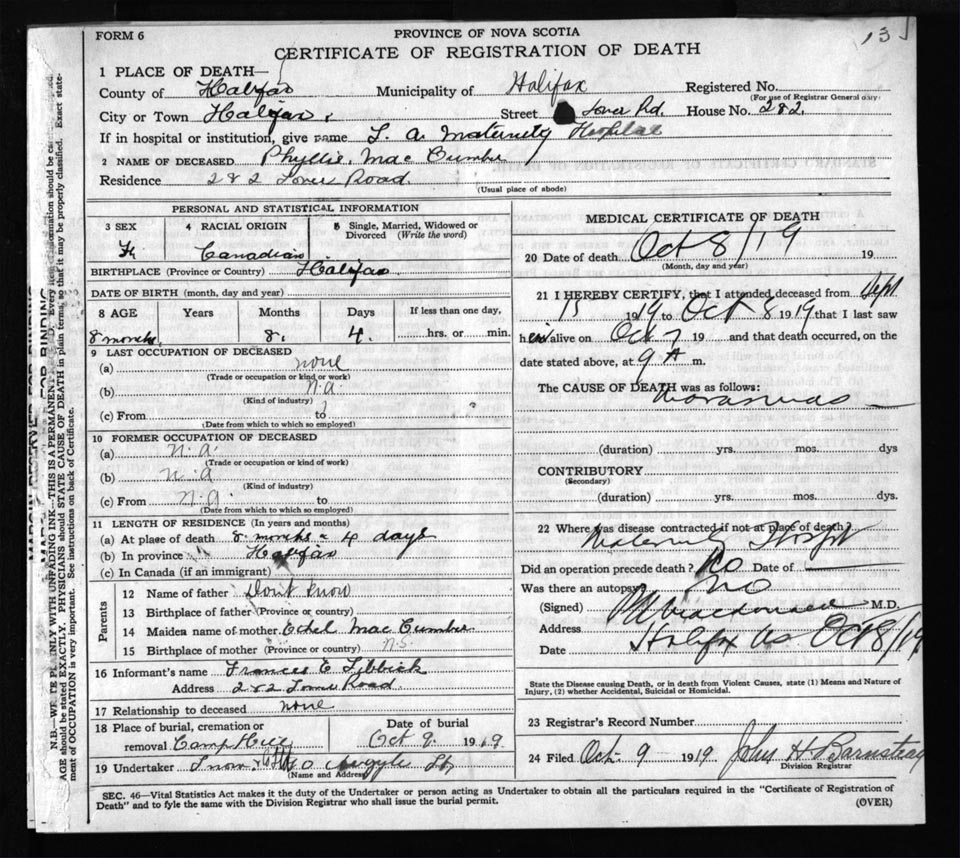 13
FORM 6
PROVINCE OF NOVA SCOTIA
CERTIFICATE OF REGISTRATION OF DEATH
1 PLACE OF DEATH—
County of Halifax Municipality of Halifax Registered No.
(For use of Registrar General only
City or Town Halifax Street Tower Rd. House No. 282.
If in hospital or institution, give name S. A. Maternity Hospital
2 NAME OF DECEASED Phyllis Mac Cumber
Residence 282 Tower Road.
(Usual place of abode)
PERSONAL AND STATISTICAL INFORMATION
3 SEX 4 RACIAL ORIGIN 5 Single, Married, Widowed or Divorced (Write the word)
Canadian
BIRTHPLACE (Province or Country) Halifax
DATE OF BIRTH (month, day and year)
8 AGE Years Months Days If less than one day,
8 months 8. 4. hrs. or min.
9 LAST OCCUPATION OF DECEASED
(a) none
(Trade or occupation or kind or work)
(b) n.a.
(Kind of industry)
(c) From to
(Date from which to which so employed)
10 FORMER OCCUPATION OF DECEASED
(a) n.a.
(Trade or occupation or kind of work)
(b) n.a
(Kind of industry)
(c) From n.a. to
(Date from which to which so employed)
11 LENGTH OF RESIDENCE (In years and months)
(a) At place of death 8 months - 4 days
(b) In province Halifax
(c) In Canada (if an immigrant)
Parents
12 Name of father Don't know
13 Birthplace of father (Province or country)
14 Maiden name of mother Ethel Mac Cumber
15 Birthplace of mother (Province or country) N.S.
16 Informant's name Frances E
Address 282 Tower Road.
17 Relationship to deceased none
18 Place of burial, cremation or removal Camp Hill
Date of burial Oct 9. 1919.
19 Undertaker Snow Argyle St.
(Name and Address)
MEDICAL CERTIFICATE OF DEATH
20 Date of death Oct 8/19 19
(Month, day and year)
21 I HEREBY CERTIFY, that I attended deceased from Sept
15 1919 to Oct 8 1919 that I last saw
h alive on Oct 7 19 and that death occurred, on the
date stated above, at 9 A m.
The CAUSE OF DEATH was as follows:
Marasmus
(duration) yrs. mos. dys
CONTRIBUTORY
(Secondary)
(duration) yrs. mos. dys.
22 Where was disease contracted if not at place of death?
Maternity Hospt
Did an operation precede death? No Date of
Was there an autopsy? No
(Signed) Macdonald M.D.
Address Halifax
Date Oct 8/19
State the Disease causing Death, or in death from Violent Causes, state (1) Means and Nature of
Injury, (2) whether Accidental, Suicidal or Homicidal.
23 Registrar's Record Number
24 Filed Oct. 9 1919 John H Barnstead
Division Registrar
SEC. 46—Vital Statistics Act makes it the duty of the Undertaker or person acting as Undertaker to obtain all the particulars required in the "Certificate of Registration of
Death" and to fyle the same with the Division Registrar who shall issue the burial permit.
(OVER)